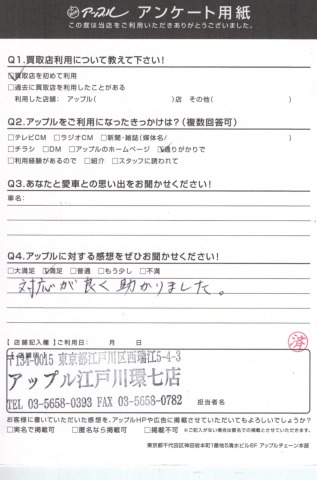 アップル アンケート用紙
この度は当店をご利用いただきありがとうございました。
Q1.買取店利用について教えて下さい!
☑買取店を初めて利用
□過去に買取店を利用したことがある
利用した店舗: アップル( )店 その他( )
Q2.アップルをご利用になったきっかけは?(複数回答可)
□テレビCM □ラジオCM □新聞・雑誌(媒体名/ )
□チラシ □DM □アップルのホームページ ☑通りがかりで
□利用経験があるので □紹介 □スタッフに誘われて
Q3.あなたと愛車との思い出をお聞かせください!
車名:
Q4.アップルに対する感想をぜひお聞かせください!
□大満足 ☑満足 □普通 □もう少し □不満
対応が良く助かりました。
【店舗記入欄】ご利用日: 月 日
済
【店舗
〒134-0015 東京都江戸川区西瑞江5-4-3
アップル江戸川環七店
TEL 03-5658-0393 FAX 03-5658-0782
担当者名
お客様に書いていただいた感想を、アップルHPや広告に掲載させていただいてもよろしいでしょうか?
□実名で掲載可 □匿名なら掲載可 □掲載不可 ※ご記入がない場合は匿名での掲載とさせていただきます。
東京都千代田区神田岩本町1番地5清水ビル6F アップルチェーン本部